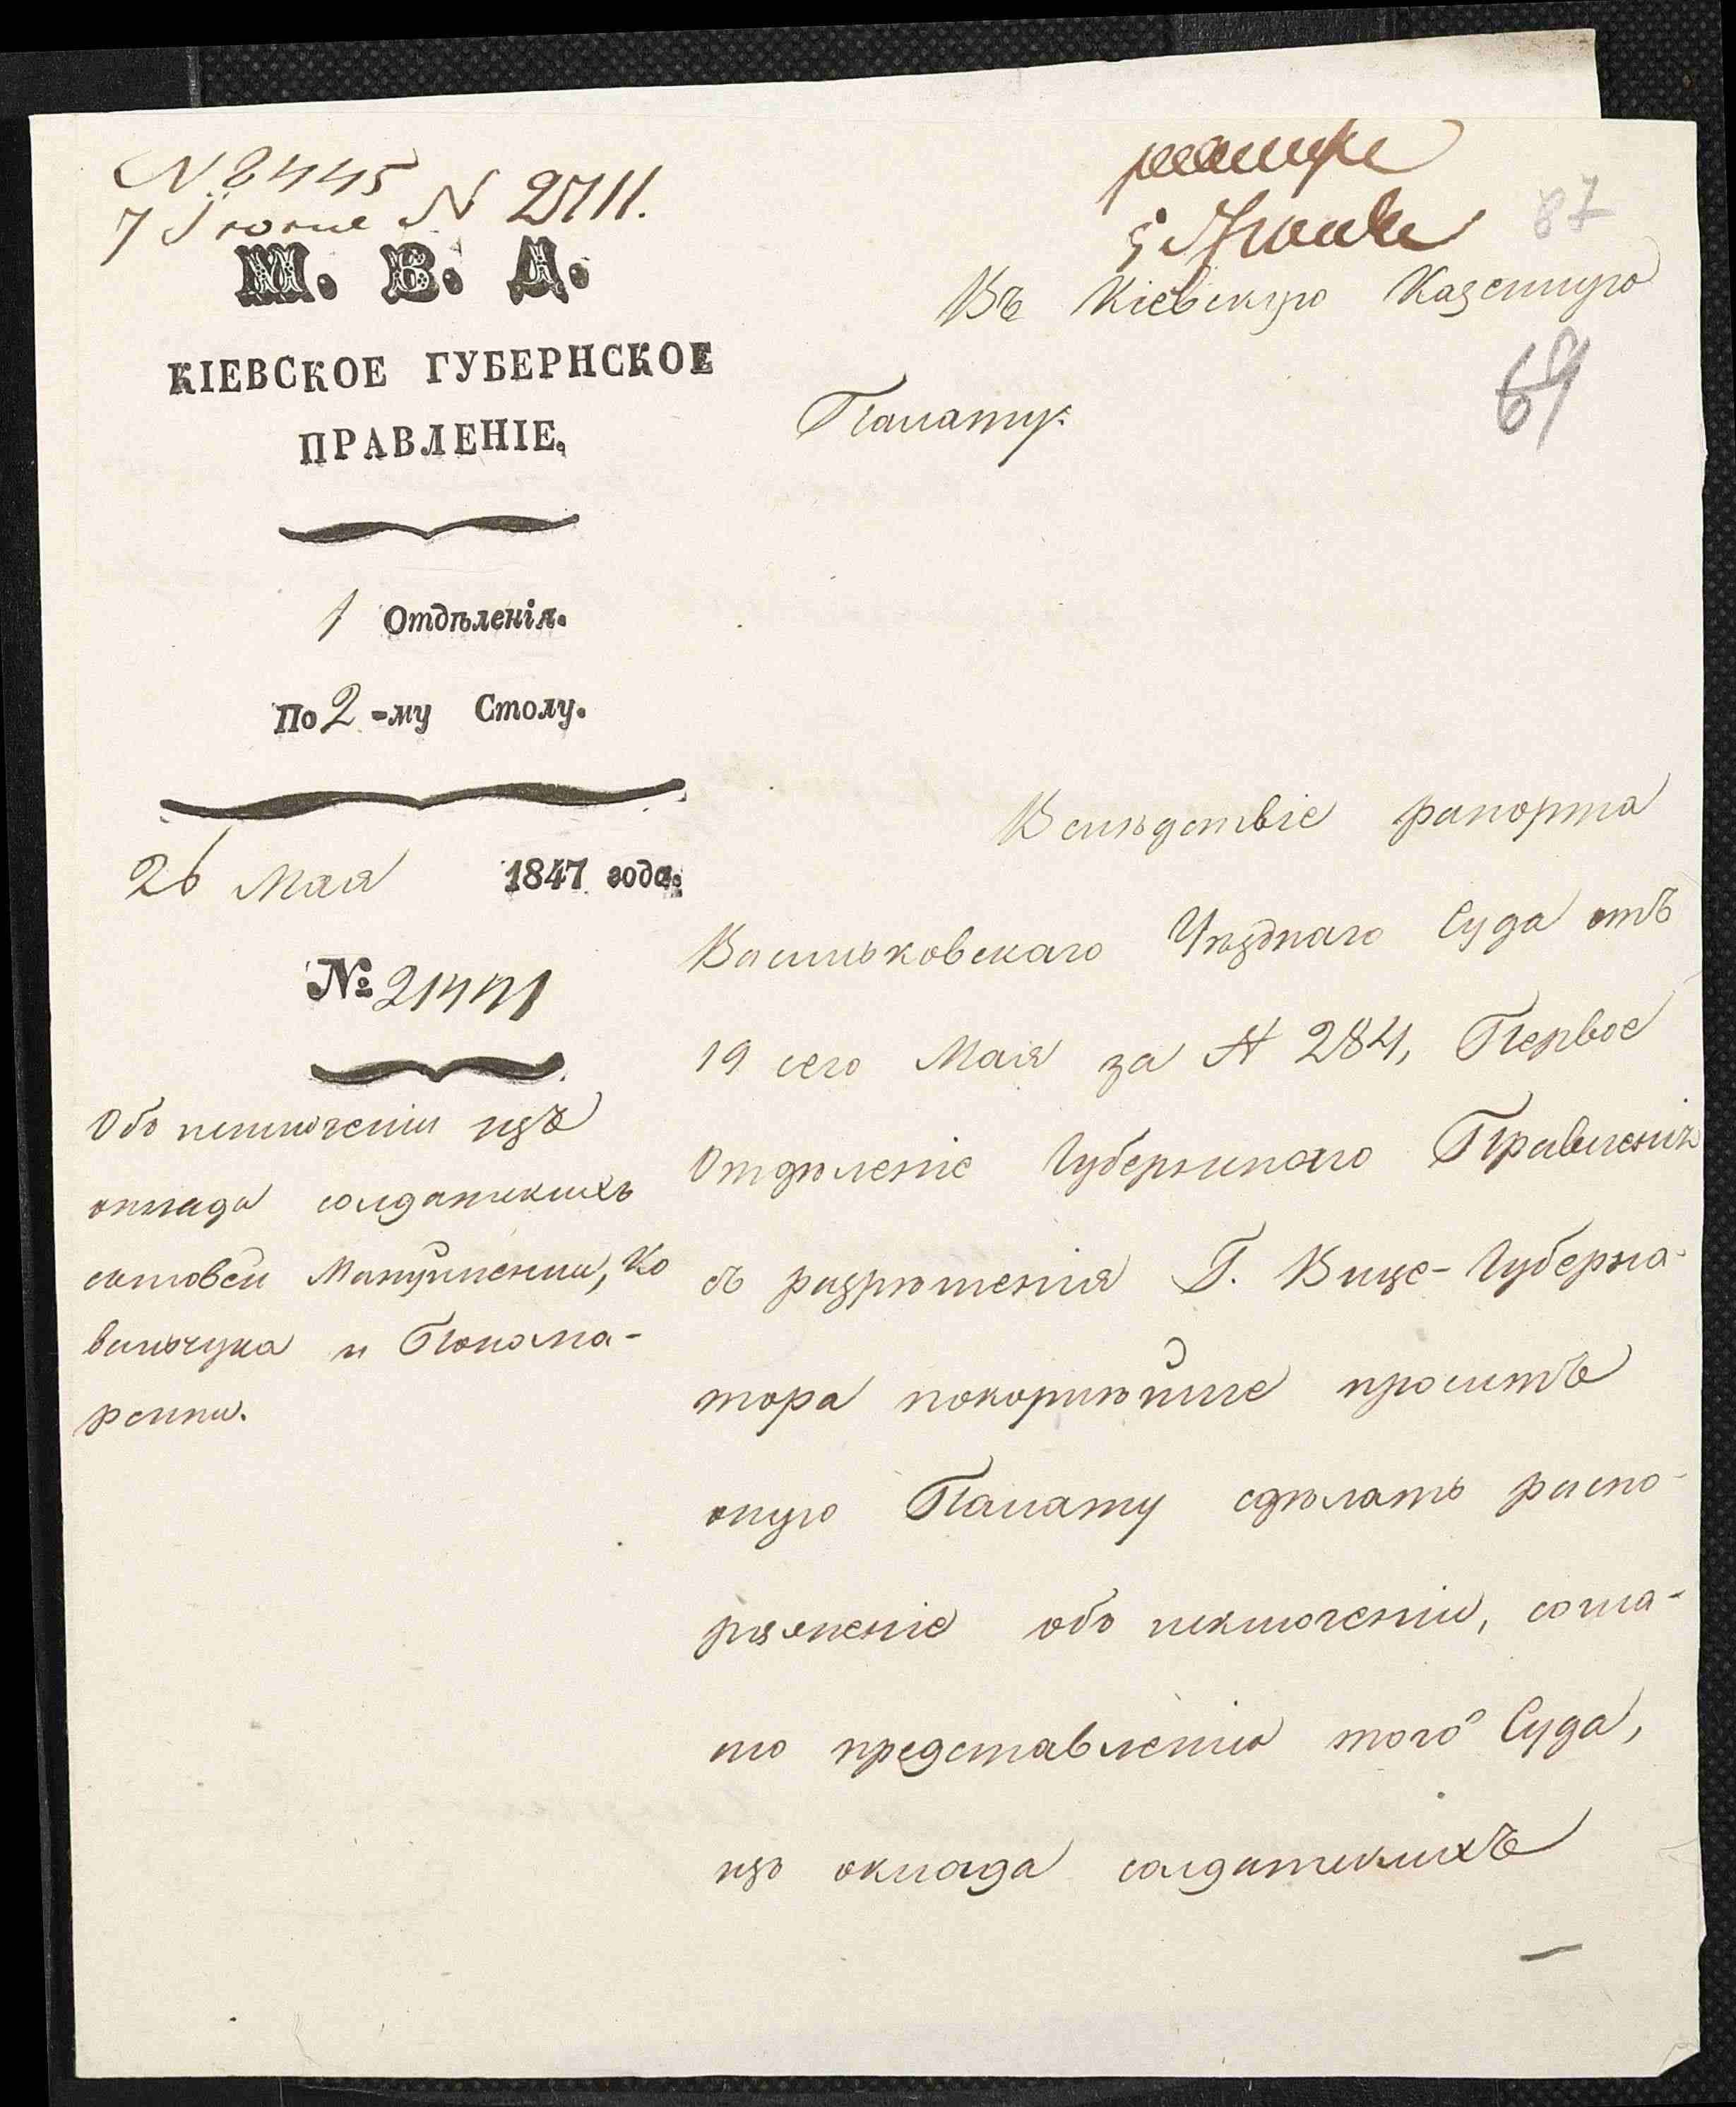 № 8445
7 Іюня № 2711.
М. В. Д.
КІЕВСКОЕ ГУБЕРНСКОЕ
ПРАВЛЕНІЕ.
1 Отдѣленія.
По 2-му Столу.
26 Мая 1847 года.
№ 21441
Объ исключеніи изъ
оклада солдатскихъ
сыновей Мануйленки, Ко
вальчука и Понома-
ренки.
5 Іюня
87
Въ Кіевскую Казенную
69
Палату.
Вслѣдствіе рапорта
Васильковскаго Уѣзднаго Суда отъ
19 сего Мая за № 284, Первое
Отдѣленіе Губернскаго Правленія
съ разрѣшенія Г. Вице-Губерна-
тора покорнѣйше проситъ
оную Палату сдѣлать распо-
ряженіе объ исключеніи, согла-
сно представленію того Суда,
изъ оклада солдатскихъ